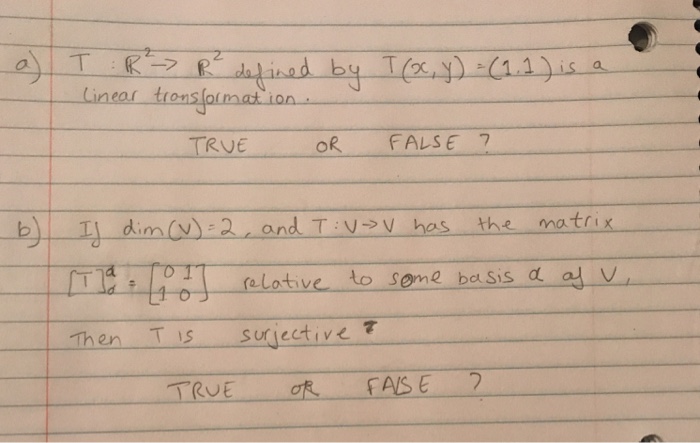 a) T : R² → R² defined by T(x, y) = (1.1) is a
linear transformation.
TRUE OR FALSE ?
b) If dim(V) = 2, and T : V → V has the matrix
[T]α^α = [0 1; 1 0] relative to some basis α of V,
Then T is surjective ?
TRUE OR FALSE ?